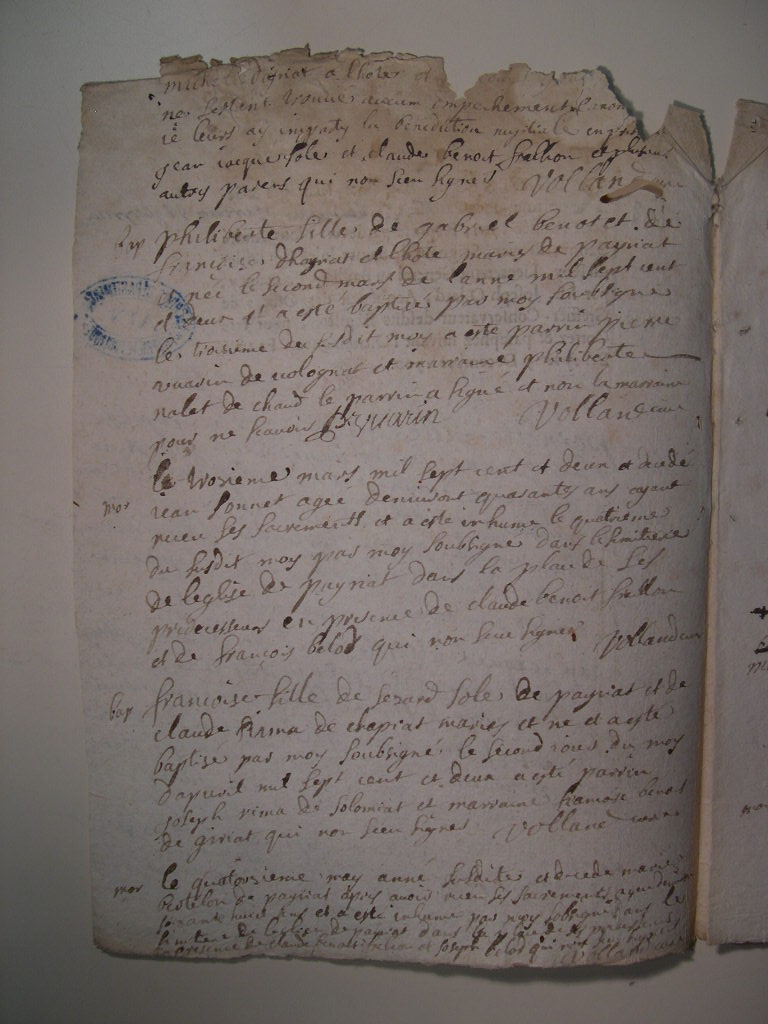 michel dhyriat a lhote et
ne sestent trouvé aucun empechement canon
je leurs ay imparty la benediction nuptiale en
jean jacque sole et claude benoit frallion et plusieurs
autres parens qui non sceu signes Volland cure
bap philiberte fille de gabriel benoit et de
françoise dhayriat et lhote maries de payriat
née le second mars de lanne mil sept cent
et deux et a esté baptisé par moy soubsigne
le troisieme du susdit moy a esté parrin pierre
vuarin de volognat et marraine philiberte
nalet de chaud le parrin a signé et non la marraine
pour ne scavoir P. vuarin Volland cure
le troisieme mars mil sept cent et deux et decedé
mor jean sonnet agee denvisont quarantes ans ayant
receu ses sacrements et a esté inhume le quatrieme
du susdit moy par moy soubsigne dans le simitiere
de leglise de payriat dans la place de ses
predecesseurs en presence de claude benoit frallion
et de françois belod qui non sceu signer Volland cure
bap francoise fille de sezard sole de payriat et de
claude rima de chapiat maries et ne et a esté
baptisé par moy soubsigné le second jour du moy
dapvril mil sept cent et deux a esté parrin
joseph rima de solomiat et marraine francoise benoit
de giriat qui non sceu signes Volland cure
mor le quatorsieme may anné susdite et decede marie
bertelon de payriat apres avoir receu ses sacrements agee de
soixante ans et a este inhume par moy sobsigne dans le
simitiere de leglise de payriat dans la place de ses predecesseurs
en presence de claude benoit frallion et joseph belod qui non sceu signes
Volland cure